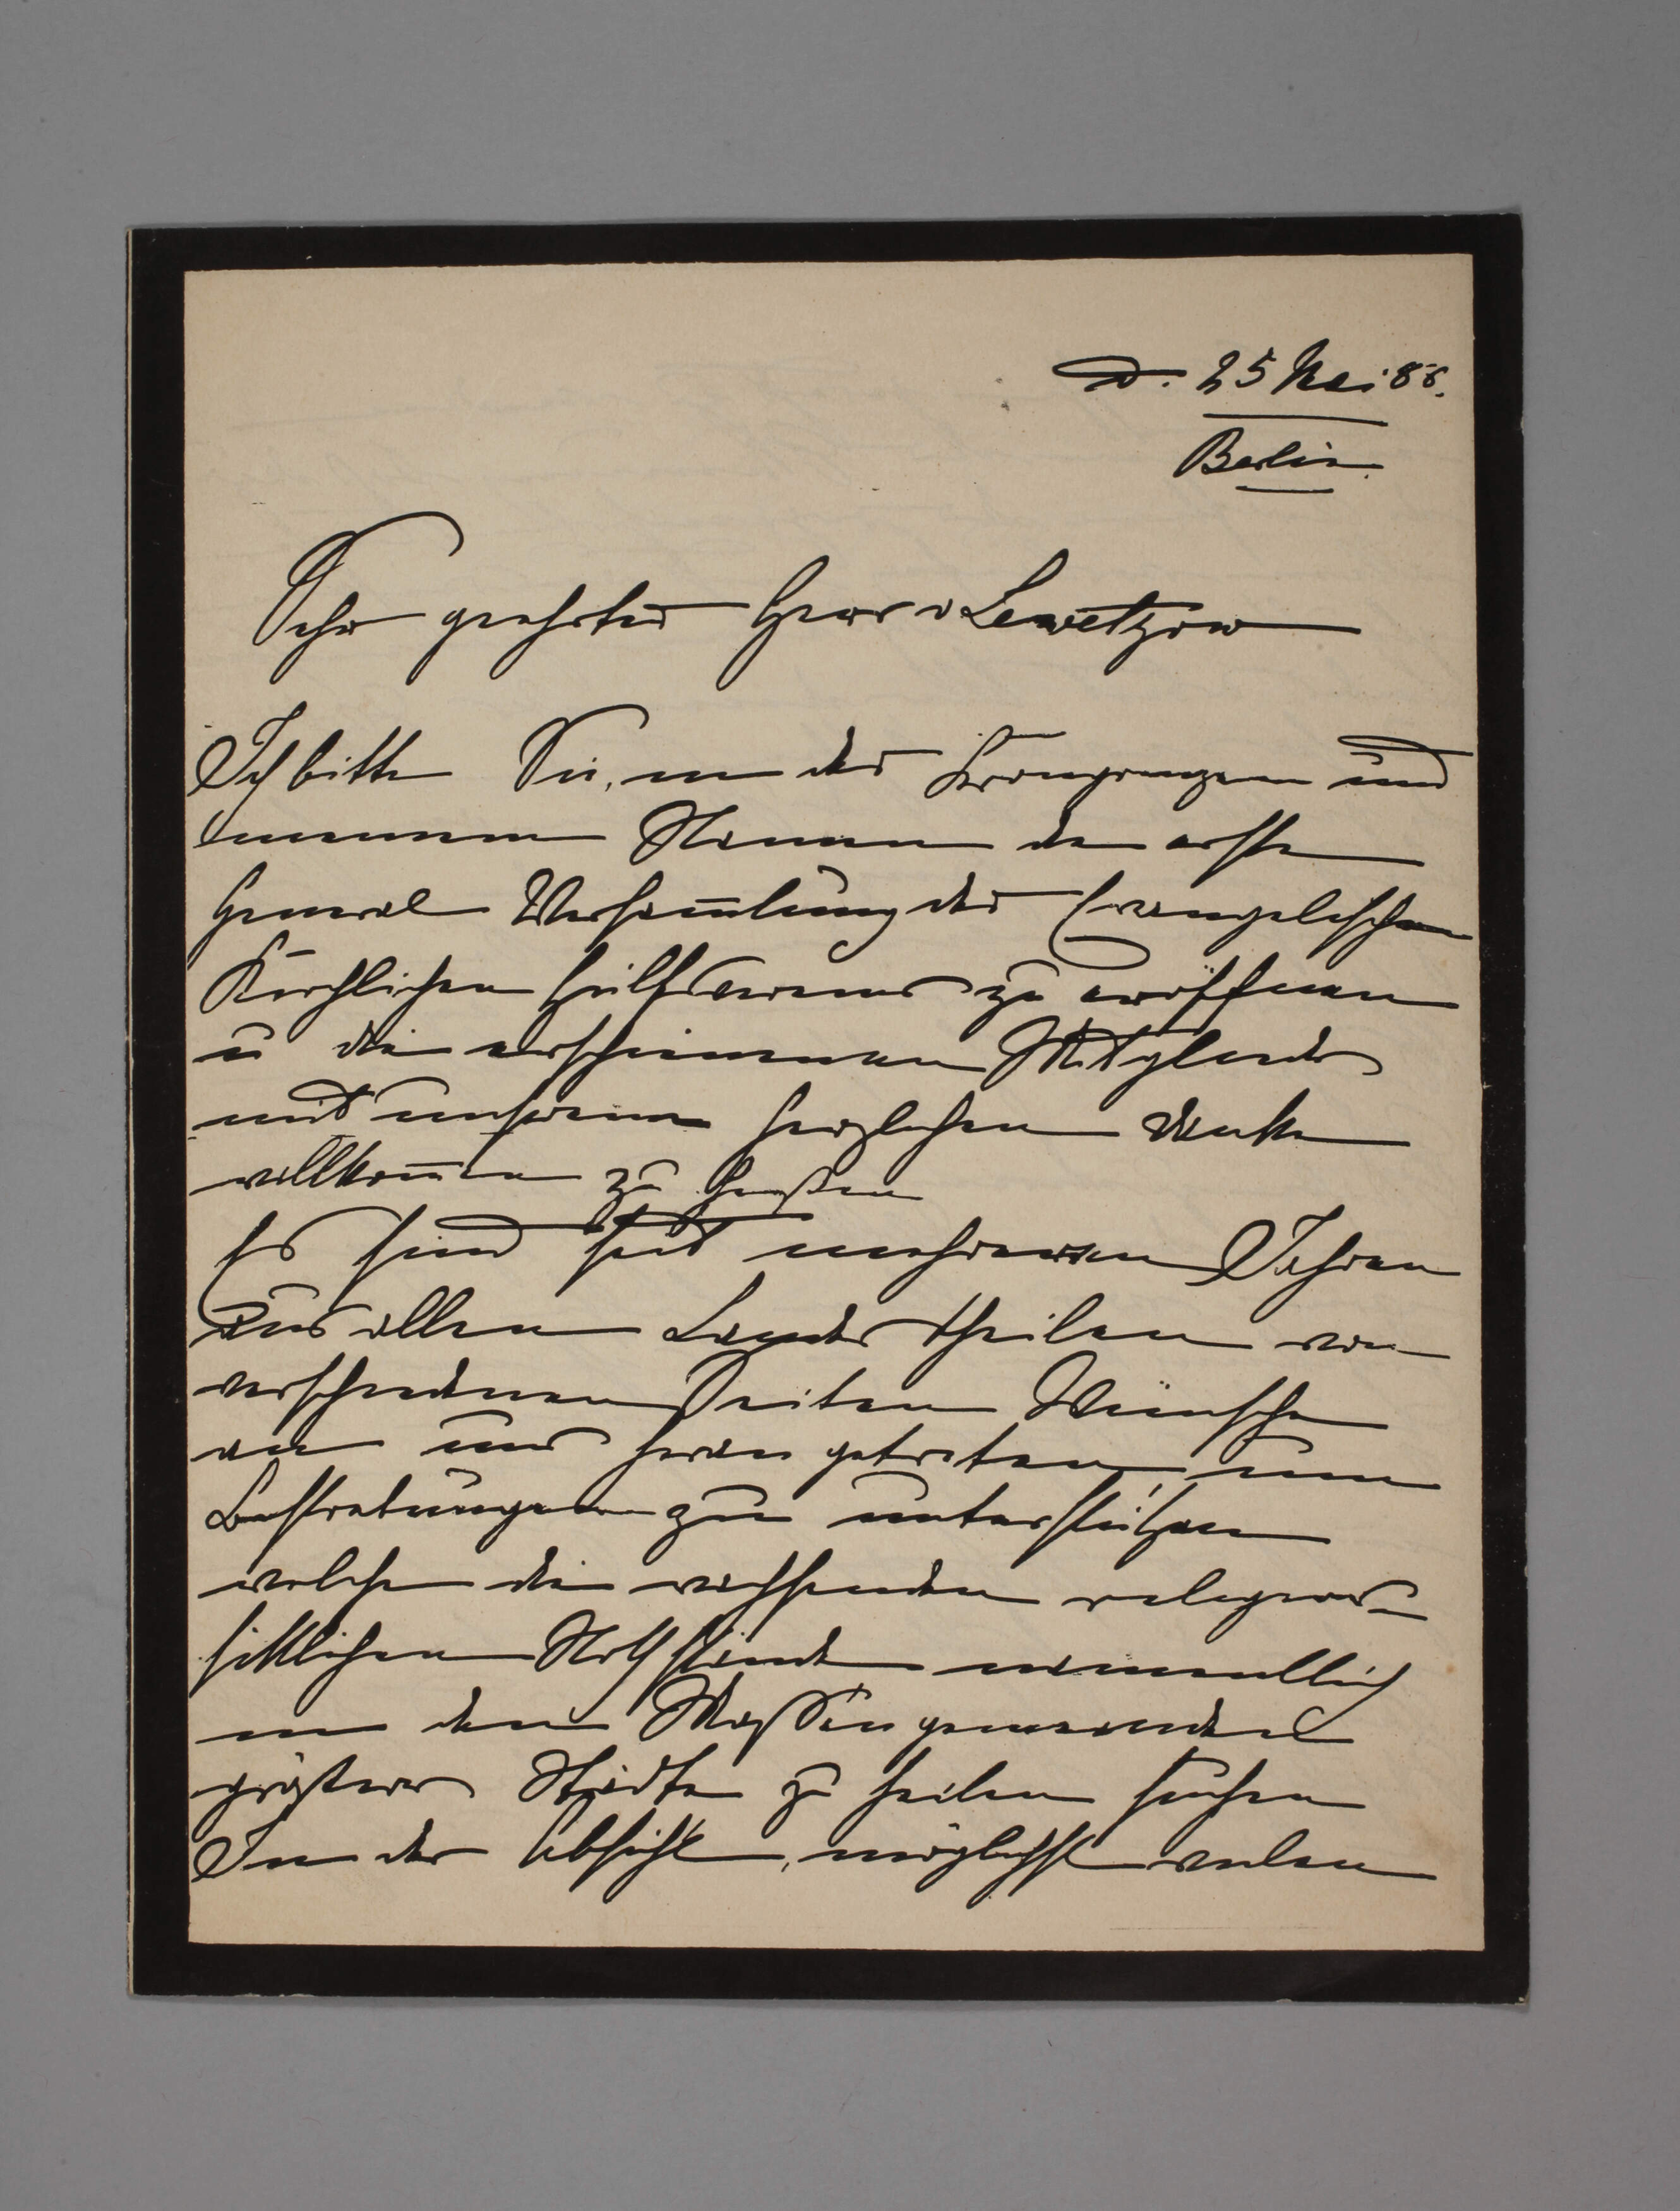 D. 25 Mai 88.
Berlin.
Sehr geehrter Herr v Levetzow
Ich bitte Sie, in der Kronprinzen und
meinem Namen die erste
General Versammlung des Evangelischen
Kirchlichen Hülfsvereins zu eröffnen
u die erschienenen Mitglieder
mit unserem herzlichen Danke
willkommen zu heißen
Es sind seit mehreren Jahren
aus allen Landestheilen von
verschiedenen Seiten Wünsche
an uns heran getreten, um
Bestrebungen zu unterstützen
welche die wachsenden religiös-
sittlichen Nothstände namentlich
in den Massengemeinden
größerer Städte zu heilen suchen
In der Absicht, möglichst vielen